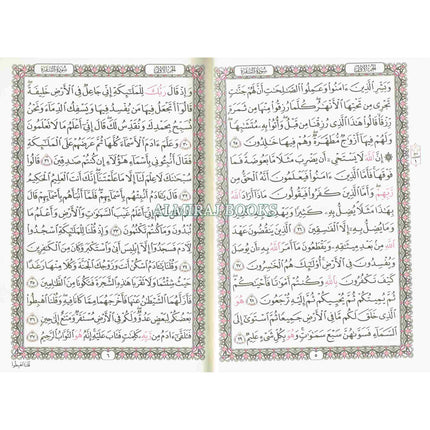 الجزء الأول
سورة البقرة
وبشر الذين ءامنوا وعملوا الصلحت أن لهم جنت
تجرى من تحتها الأنهر كلما رزقوا منها من ثمرة
رزقا قالوا هذا الذى رزقنا من قبل وأتوا به متشبها
ولهم فيها أزوج مطهرة وهم فيها خلدون ٢٥
إن الله لا يستحى أن يضرب مثلا ما بعوضة فما
فوقها فأما الذين ءامنوا فيعلمون أنه الحق من
ربهم وأما الذين كفروا فيقولون ماذا أراد الله
بهذا مثلا يضل به كثيرا ويهدى به كثيرا
وما يضل به إلا الفسقين ٢٦ الذين ينقضون عهد
الله من بعد ميثقه ويقطعون ما أمر الله به أن يوصل
ويفسدون فى الأرض أولئك هم الخسرون ٢٧
كيف تكفرون بالله وكنتم أموتا فأحيكم
ثم يميتكم ثم يحييكم ثم إليه ترجعون ٢٨ هو
الذى خلق لكم ما فى الأرض جميعا ثم استوى إلى
السماء فسوىهن سبع سموت وهو بكل شىء عليم ٢٩
٥
الجزء الأول
سورة البقرة
وإذ قال ربك للملئكة إنى جاعل فى الأرض خليفة
قالوا أتجعل فيها من يفسد فيها ويسفك الدماء ونحن
نسبح بحمدك ونقدس لك قال إنى أعلم ما لا تعلمون
٣٠ وعلم ءادم الأسماء كلها ثم عرضهم على الملئكة
فقال أنبئونى بأسماء هؤلاء إن كنتم صدقين ٣١ قالوا
سبحنك لا علم لنا إلا ما علمتنا إنك أنت العليم الحكيم
٣٢ قال يادم أنبئهم بأسمائهم فلما أنبأهم بأسمائهم قال
ألم أقل لكم إنى أعلم غيب السموت والأرض وأعلم ما
تبدون وما كنتم تكتمون ٣٣ وإذ قلنا للملئكة اسجدوا
لادم فسجدوا إلا إبليس أبى واستكبر وكان من الكفرين
٣٤ وقلنا يادم اسكن أنت وزوجك الجنة وكلا منها رغدا
حيث شئتما ولا تقربا هذه الشجرة فتكونا من الظلمين ٣٥
فأزلهما الشيطن عنها فأخرجهما مما كانا فيه وقلنا اهبطوا
بعضكم لبعض عدو ولكم فى الأرض مستقر ومتع إلى حين ٣٦
فتلقى ءادم من ربه كلمت فتاب عليه إنه هو التواب الرحيم ٣٧
٦
قلنا اهبطوا
ALMIRAJ BOOKS